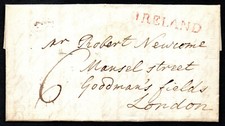 IRELAND
Mr Robert Newcome
Mansel street
6
Goodman's fields
London